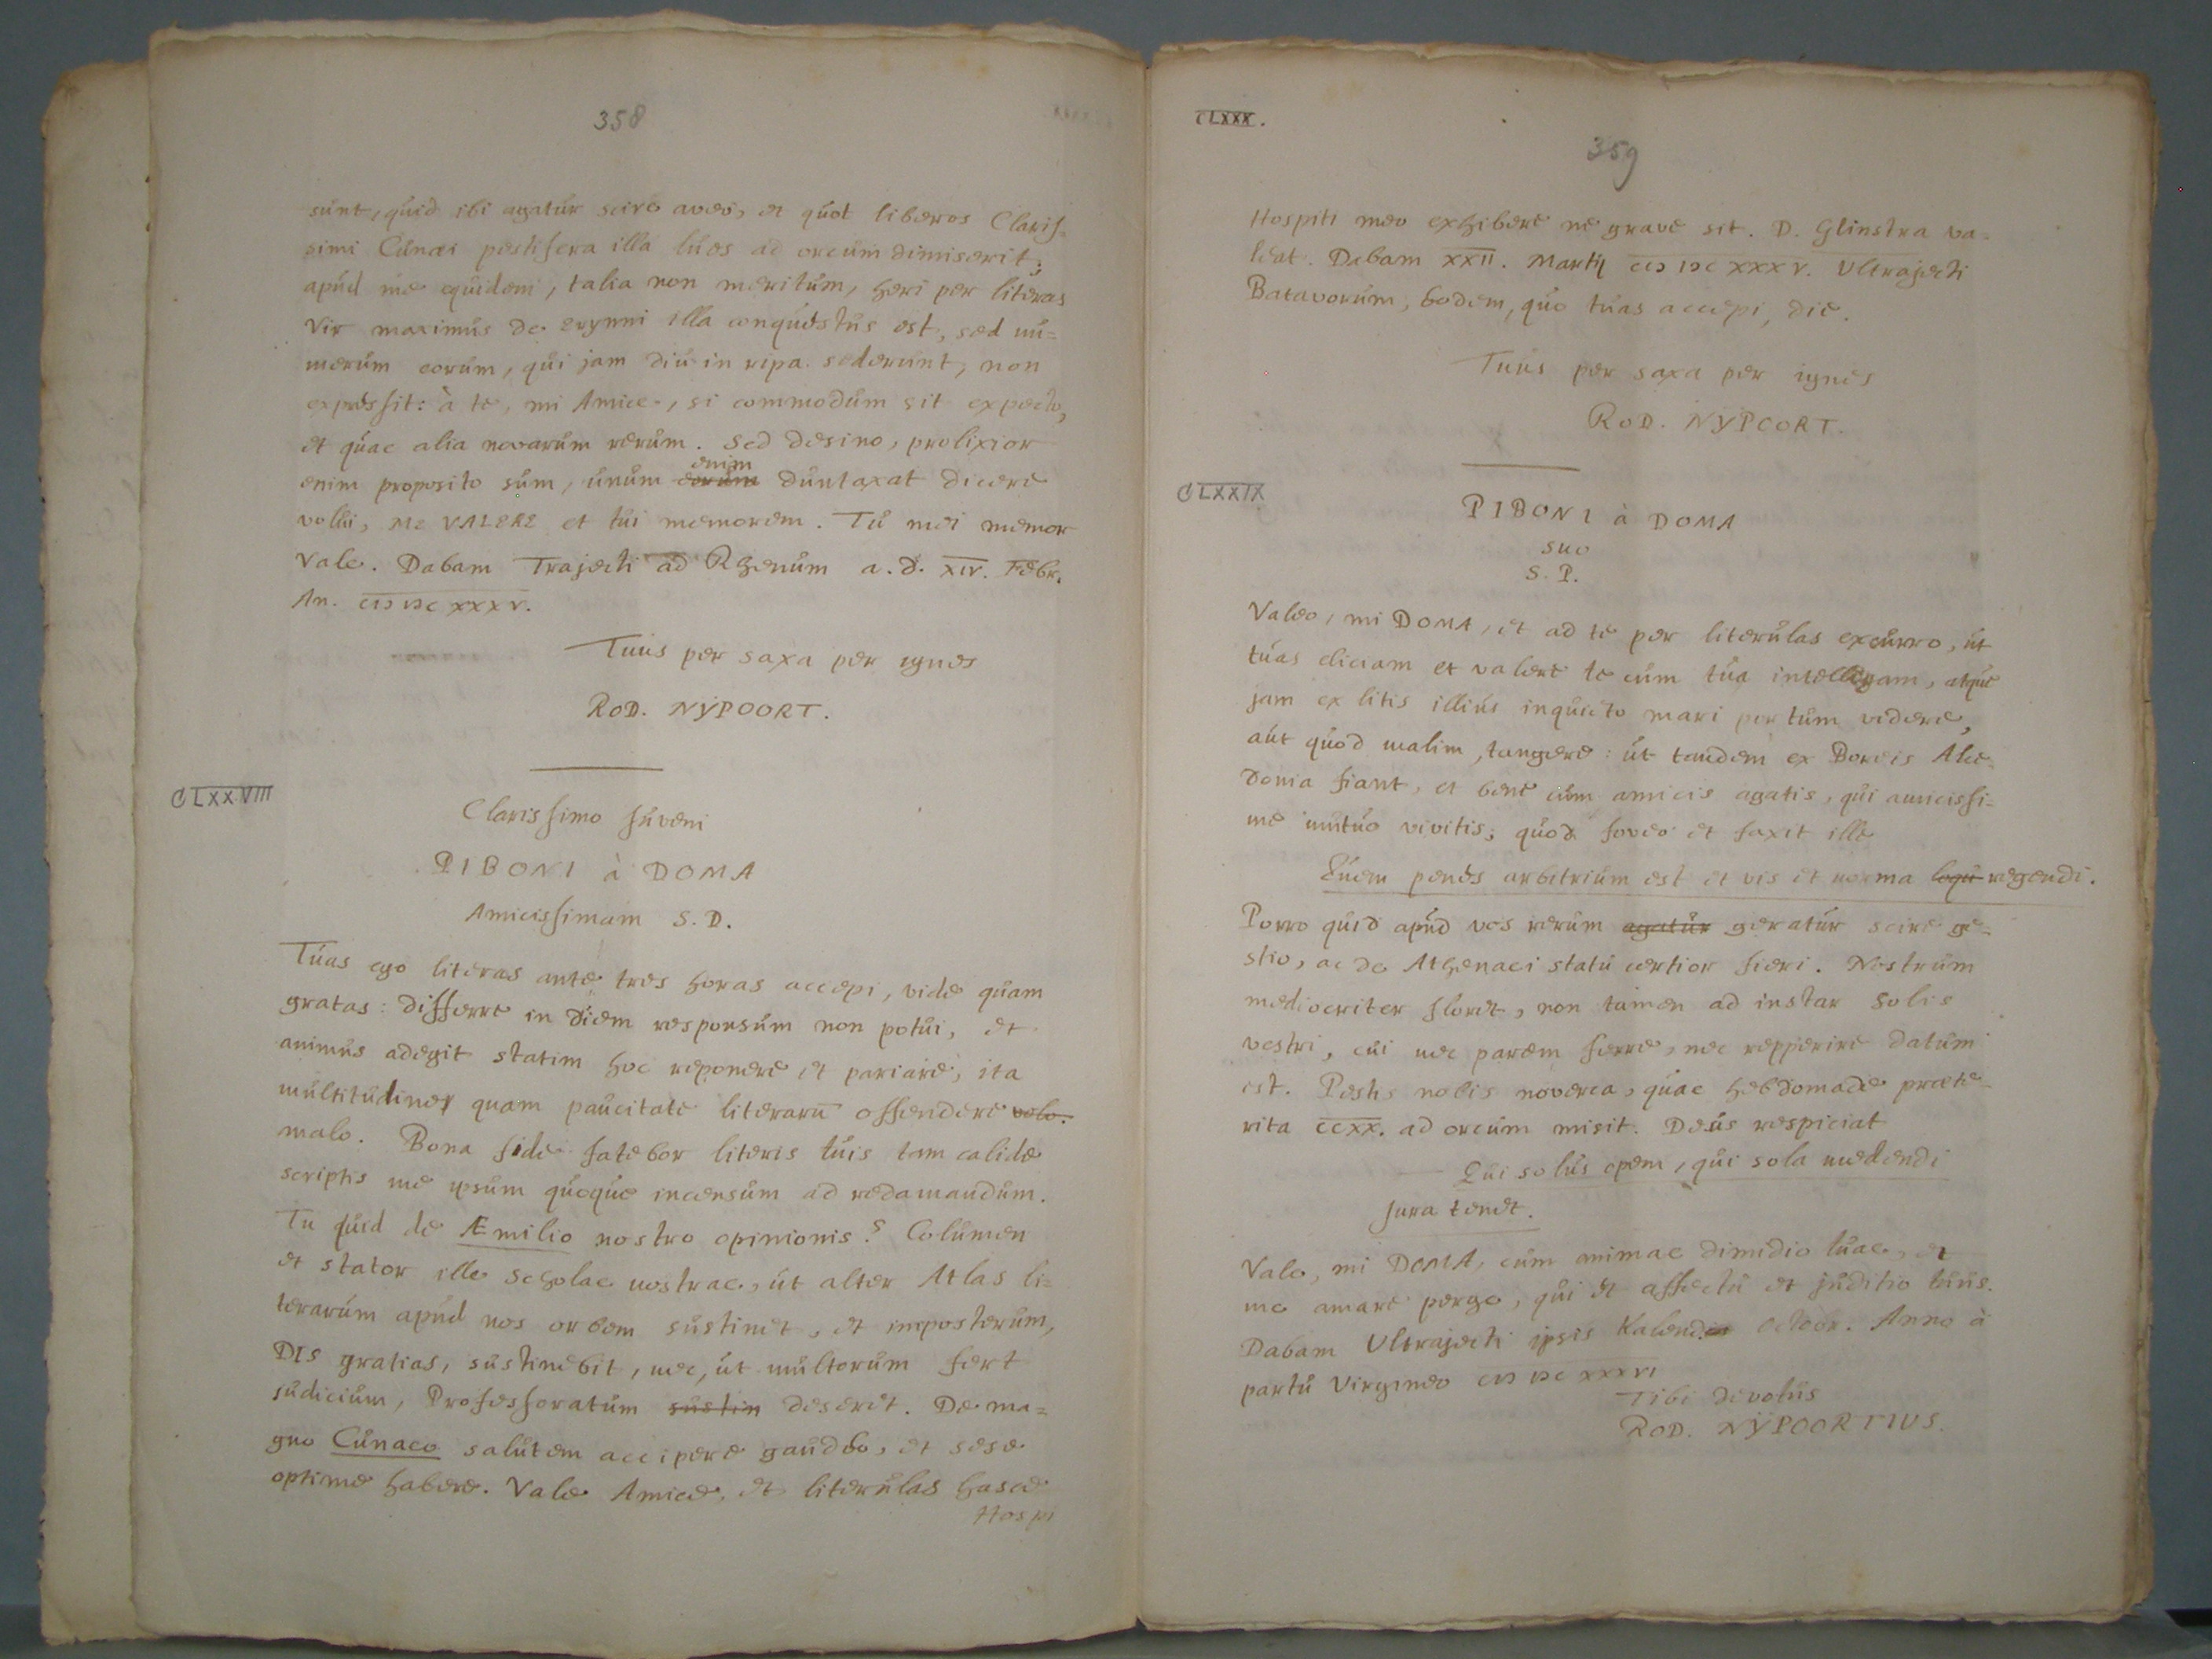 358
sunt, quid ibi agatur scire aveo, et quot liberos Claris-
simi Cunaei pestifera illa lues ad orcum dimiserit;
apud me equidem, talia non meritum, heri per literas
Vir maximus de erynni illa conquestus est, sed nu=
merum eorum, qui jam diu in ripa sederunt, non
expressit: à te, mi Amice, si commodum sit expecto,
et quae alia novarum rerum. Sed desino, prolixior
enim
enim proposito sum, unum eorum duntaxat dicere
volui, me VALERE et tui memorem. Tu mei memor
Vale. Dabam Trajecti ad Rhenum a. d. XIV. Febr.
An. CIƆ IƆC XXXV.
Tuus per saxa per ignes
ROD. NŸPOORT.
CLXXVIII
Clarissimo Juveni
PIBONI à DOMA
Amicissimam S. D.
Tuas ego literas ante tres horas accepi, vide quam
gratas: differre in diem responsum non potui, et
animus adegit statim hoc reponere et pariare, ita
multitudine quam paucitate literarū offendere volo.
malo. Bona fide fatebor literis tuis tam calide
scriptis me ipsum quoque incensum ad redamandum.
Tu quid de Æmilio nostro opinionis? Columen
et stator ille scholae nostrae, ut alter Atlas li=
terarum apud nos orbem sustinet, et imposterum,
DIS gratias, sustinebit, nec, ut multorum fert
judicium, Professoratum sustin deseret. De ma=
gno Cunaeo salutem accipere gaudeo, et sese
optime habere. Vale Amice, et literulas hasce
Hospi
CLXXX.
359
Hospiti meo exhibere ne grave sit. D. Glinstra va=
leat. Dabam XXII. Martij CIƆ IƆC XXXV. Ultrajecti
Batavorum, eodem, quo tuas accepi, die.
Tuus per saxa per ignes
ROD. NYPOORT.
CLXXIX
PIBONI à DOMA
suo
S. P.
Valeo, mi DOMA, et ad te per literulas excurro, ut
tuas eliciam et valere te cum tua intelligam, atque
jam ex litis illius inquieto mari portum videre,
aut quod malim, tangere: ut tandem ex Boreis Alce
donia fiant, et bene cum amicis agatis, qui amicissi=
me mutuo vivitis; quod foveo et faxit ille
Quem penes arbitrium est et vis et norma loqu regendi.
Porro quid apud vos rerum agatur geratur scire ge=
stio, ac de Athenaei statu certior fieri. Nostrum
mediocriter floret, non tamen ad instar Solis
vestri, cui nec parem ferre, nec repperire datum
est. Pestis nobis noverca, quae hebdomade praete=
rita CCXX. ad orcum misit. Deus respiciat
Qui solus opem, qui sola medendi
Jura tenet.
Vale, mi DOMA, cum animae dimidio tuae, et
me amare perge, qui et affectu et juditio tuus.
Dabam Ultrajecti ipsis Kalend. Octobr. Anno à
partu Virgineo CIƆ IƆC XXXVI
Tibi devotus
ROD. NŸPOORTIUS.